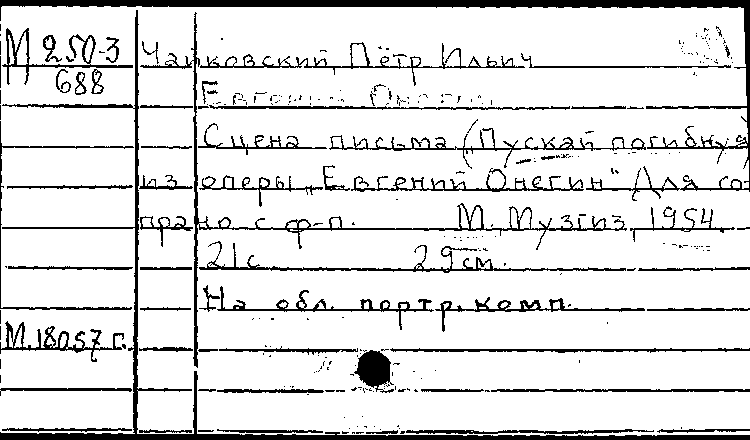 М 250-3
688
Чайковский, Пётр Ильич
Евгений Онегин.
Сцена письма („Пускай погибну я")
из оперы „Евгений Онегин" Для со-
прано с ф-п. М., Музгиз, 1954.
21 с. 29 см.
На обл. портр. комп.
М.18057 г.